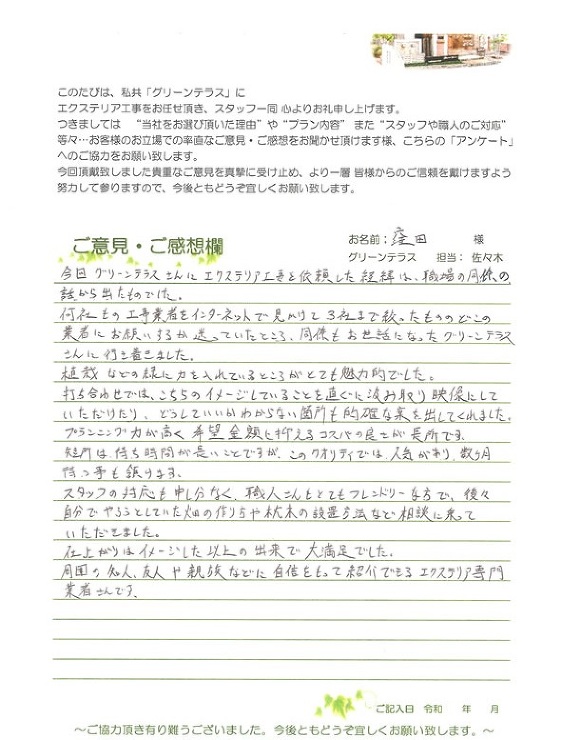 このたびは、私共「グリーンテラス」に
エクステリア工事をお任せ頂き、スタッフ一同 心よりお礼申し上げます。
つきましては　“当社をお選び頂いた理由” や “プラン内容”　また “スタッフや職人のご対応”
等々…お客様のお立場での率直なご意見・ご感想をお聞かせ頂けます様、こちらの「アンケート」
へのご協力をお願い致します。
今回頂戴致しました貴重なご意見を真摯に受け止め、より一層 皆様からのご信頼を戴けますよう
努力して参りますので、今後ともどうぞ宜しくお願い致します。
お名前：窪田　様
ご意見・ご感想欄
グリーンテラス　担当： 佐々木
今回 グリーンテラス さんに エクステリア工事を依頼した経緯は、職場の同僚の
話から出たものでした。
何社もの工事業者をインターネットで見かけて 3社まで絞ったもののどこの
業者にお願いするか迷っていたところ、同僚もお世話になったグリーンテラス
さんに行き着きました。
植栽などの緑に力を入れているところがとても魅力的でした。
打ち合わせでは、こちらのイメージしていることを直ぐに汲み取り映像にして
いただけたり、どうしていいかわからない箇所も的確な案を出してくれました。
プランニング力が高く 希望金額に抑えるコスパの良さが長所です。
短所は待ち時間が長いことですが、このクオリティでは、人気があり、数ヶ月
待つ事も頷けます。
スタッフの対応も申し分なく、職人さんもとてもフレンドリーな方で、後々
自分でやろうとしていた畑の作り方や枕木の設置方法など相談に乗って
いただきました。
仕上がりはイメージした以上の出来で大満足でした。
周囲の知人、友人や親族などに自信をもって紹介できるエクステリア専門
業者さんです。
ご記入日　令和　　年　　月
～ご協力頂き有り難うございました。今後ともどうぞ宜しくお願い致します。～